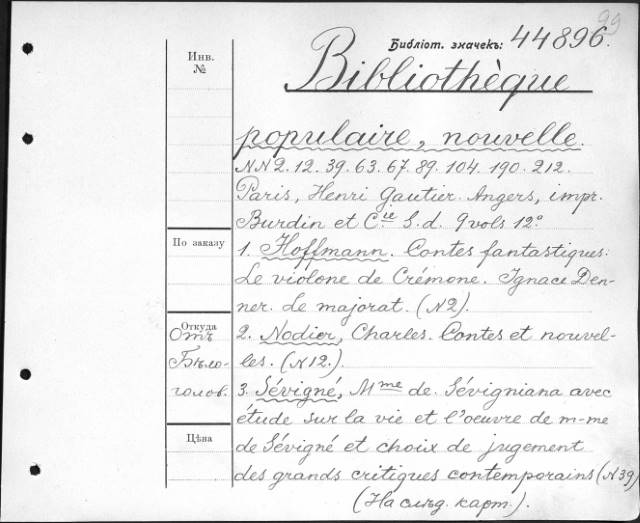 99
Библіот. значекъ: 44896.
Инв.
№
Bibliothèque
populaire, nouvelle.
NN 2. 12. 39. 63. 67. 89. 104. 190. 212.
Paris, Henri Gautier. Angers, impr.
Burdin et Cie S. d. 9 vols 12°
По заказу
1. Hoffmann. Contes fantastiques:
Le violone de Crémone. Ignace Den-
ner. Le majorat. (N 2).
Откуда
Отъ
Бѣло-
голов.
2. Nodier, Charles. Contes et nouvel-
les. (N 12.)
3. Sévigné, Mme de. Sévigniana avec
étude sur la vie et l'oeuvre de m-me
Цѣна
de Sévigné et choix de jugement
des grands critiques contemporains (N 39)
(На слѣд. карт.).